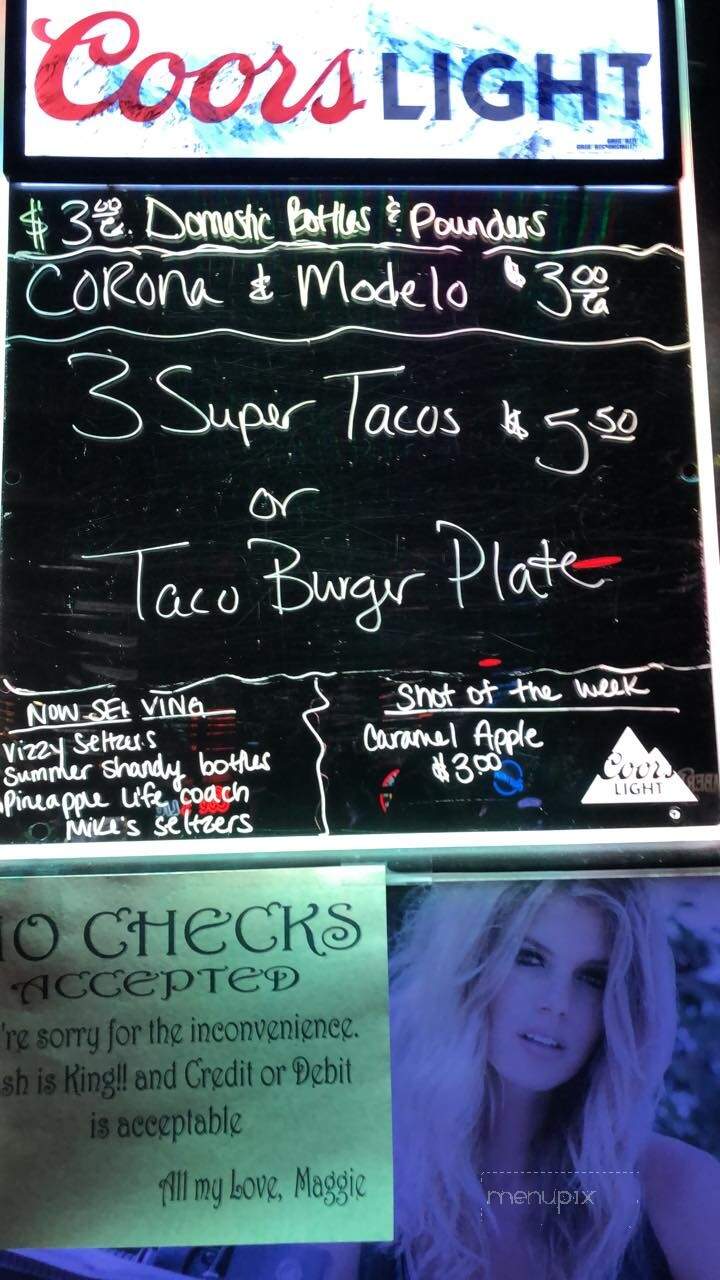 Coors LIGHT
$3.00 ea. Domestic Bottles & Pounders
CORONA & Modelo $3.00 ea
3 Super Tacos $5.50
or
Taco Burger Plate
NOW SERVING
Vizzy Seltzers
Summer shandy bottles
Pineapple Life coach
Mike's seltzers
Shot of the week
Caramel Apple
$3.00
Coors
LIGHT
NO CHECKS
ACCEPTED
're sorry for the inconvenience.
sh is King!! and Credit or Debit
is acceptable
All my Love, Maggie
menupix